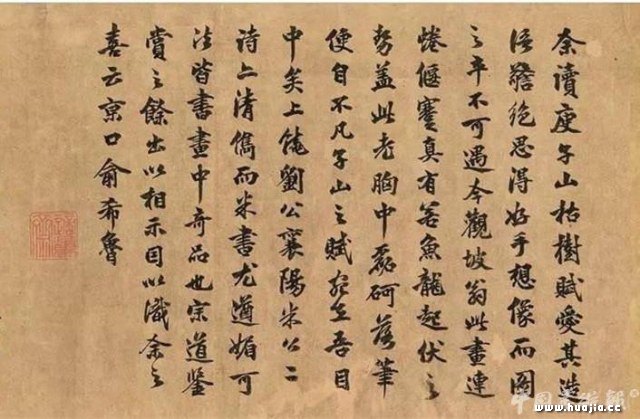 余讀庾子山枯樹賦愛其造
語警絕思得好手想像而圖
之卒不可遇今觀坡翁此畫連
蜷偃蹇真有若魚龍起伏之
勢蓋此老胸中磊砢落筆
便自不凡子山之賦宛在吾目
中矣上饒劉公襄陽米公二
詩亦清儁而米書尤遒媚可
法皆書畫中奇品也宗道鑒
賞之餘出以相示因以識余之
喜云京口俞希魯
中国美术报
www.huajia.cc